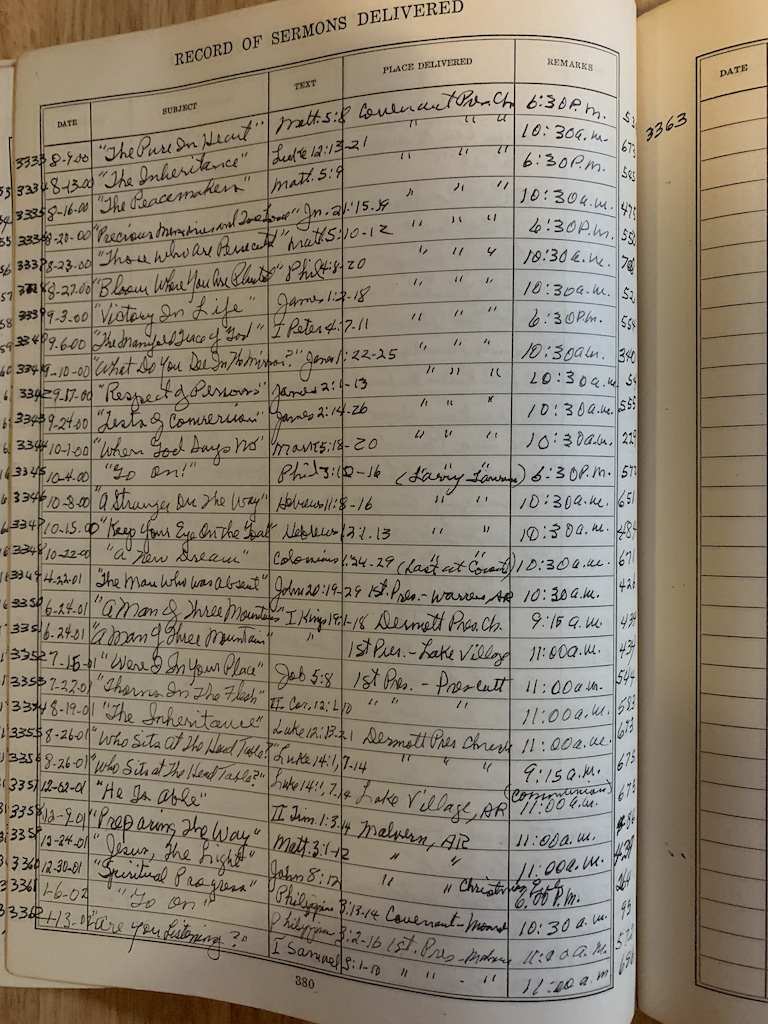 RECORD OF SERMONS DELIVERED
DATE SUBJECT TEXT PLACE DELIVERED REMARKS
3333 8-9-00 "The Pure In Heart" Matt. 5:8 Covenant Pres. Ch 6:30 P.m.
3334 8-13-00 "The Inheritance" Luke 12:13-21 " " " 10:30 a.m.
3335 8-16-00 "The Peacemakers" Matt. 5:9 " " " 6:30 P.m.
3336 8-20-00 "Precious Memories and Love" Jn. 21:15-19 " " " 10:30 a.m.
3337 8-23-00 "Those Who Are Persecuted" Matt. 5:10-12 " " " 6:30 P.m.
8-27-00 "Bloom Where You Are Planted" Phil 4:8-20 " " " 10:30 a.m.
3339 9-3-00 "Victory In Life" James 1:2-18 " " " 10:30 a.m.
3340 9-6-00 "The Manifold Grace of God" I Peter 4:7-11 " " " 6:30 P.m.
9-10-00 "What Do You See In The Mirror?" James 1:22-25 " " " 10:30 a.m.
3342 9-17-00 "Respect of Persons" James 2:1-13 " " " 10:30 a.m.
3343 9-24-00 "Tests of Conversion" James 2:14-26 " " " 10:30 a.m.
3344 10-1-00 "When God Says No" Mark 5:18-20 " " " 10:30 a.m.
3345 10-4-00 "Go On!" Phil 3:12-16 (Larry ) 6:30 P.m.
3346 10-8-00 "A Stranger On The Way" Hebrews 11:8-16 " " 10:30 a.m. 651
3347 10-15-00 "Keep Your Eye On the Goal" Hebrews 12:1-13 " " 10:30 a.m.
3348 10-22-00 "a New Dream" Colossians 1:24-29 (Last at Covent) 10:30 a.m. 671
3349 4-22-01 "The Man Who was absent" John 20:19-29 1st. Pres. - Warren, AR 10:30 a.m.
3350 6-24-01 "A Man of Three Mountains" I Kings 19:1-18 Dermott Pres. Ch. 9:15 a.m. 434
3351 6-24-01 "A Man of Three Mountain" " 1st Pres. - Lake Village 11:00 a.m. 434
3352 7-15-01 "Were I In Your Place" Job 5:8 1st Pres. - Prescott 11:00 a.m. 544
3353 7-22-01 "Thorns In The Flesh" II Cor. 12:1-10 " " " 11:00 a.m. 583
3354 8-19-01 "The Inheritance" Luke 12:13-21 Dermott Pres Church 11:00 a.m. 673
3355 8-26-01 "Who Sits At The Head Table?" Luke 14:1, 7-14 " " " 9:15 a.m. 675
3356 8-26-01 "Who Sits at The Head Table?" Luke 14:1, 7-14 Lake Village, AR (Communion) 11:00 a.m. 675
3357 12-02-01 "He Is Able" II Tim. 1:3-14 Malvern, AR 11:00 a.m.
3358 12-9-01 "Preparing The Way" Matt. 3:1-12 " " 11:00 a.m.
12-24-01 "Jesus, The Light" John 8:12 " " Christmas Eve 6:00 P.m.
3360 12-30-01 "Spiritual Progress" Philippians 3:13-14 Covenant - Monroe 10:30 a.m. 95
3361 1-6-02 "Go on" Philippians 3:2-16 1st. Pres - Malvern 11:00 a.m. 572
3362 1-13-02 "Are You Listening?" I Samuel 3:1-10 " " - " 11:00 a.m
380
3363
DATE